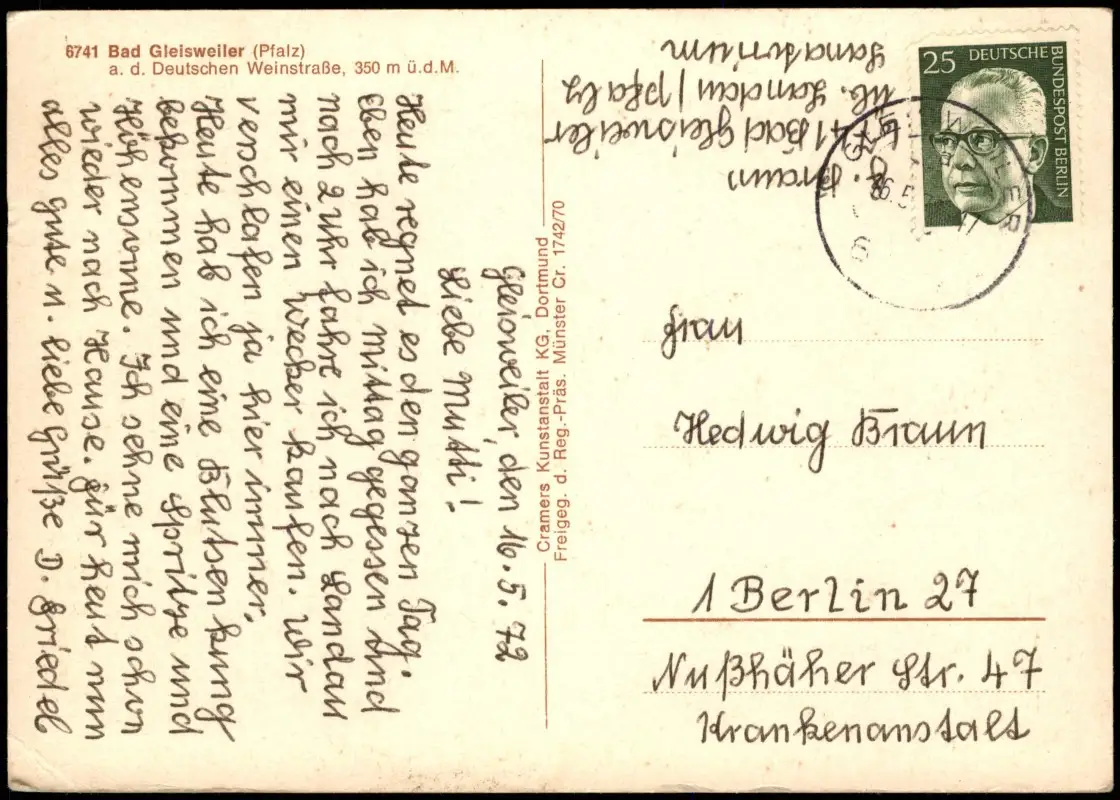 6741 Bad Gleisweiler (Pfalz)
a. d. Deutschen Weinstraße, 350 m ü.d.M.
Gleisweiler, den 16.5.72
Liebe Mutti!
Heute regnet es den ganzen Tag.
Eben hab ich mittag gegessen und
nach 2 Uhr fahre ich nach Landau
mir einen Wecker kaufen. Wir
verschlafen ja hier immer.
Heute hab ich eine Blutsenkung
bekommen und eine Spritze und
Höhensonne. Ich sehne mich schon
wieder nach Hause. Für heut nun
alles gute u. liebe Grüße D. Friedel
Cramers Kunstanstalt KG, Dortmund
Freigeg. d. Reg.-Präs. Münster Cr. 1742/70
Braun
41 Bad Gleisweiler
üb. Landau / Pfalz
Sanatorium
25 DEUTSCHE
BUNDESPOST BERLIN
Frau
Hedwig Braun
1 Berlin 27
Nußhäher Str. 47
Krankenanstalt